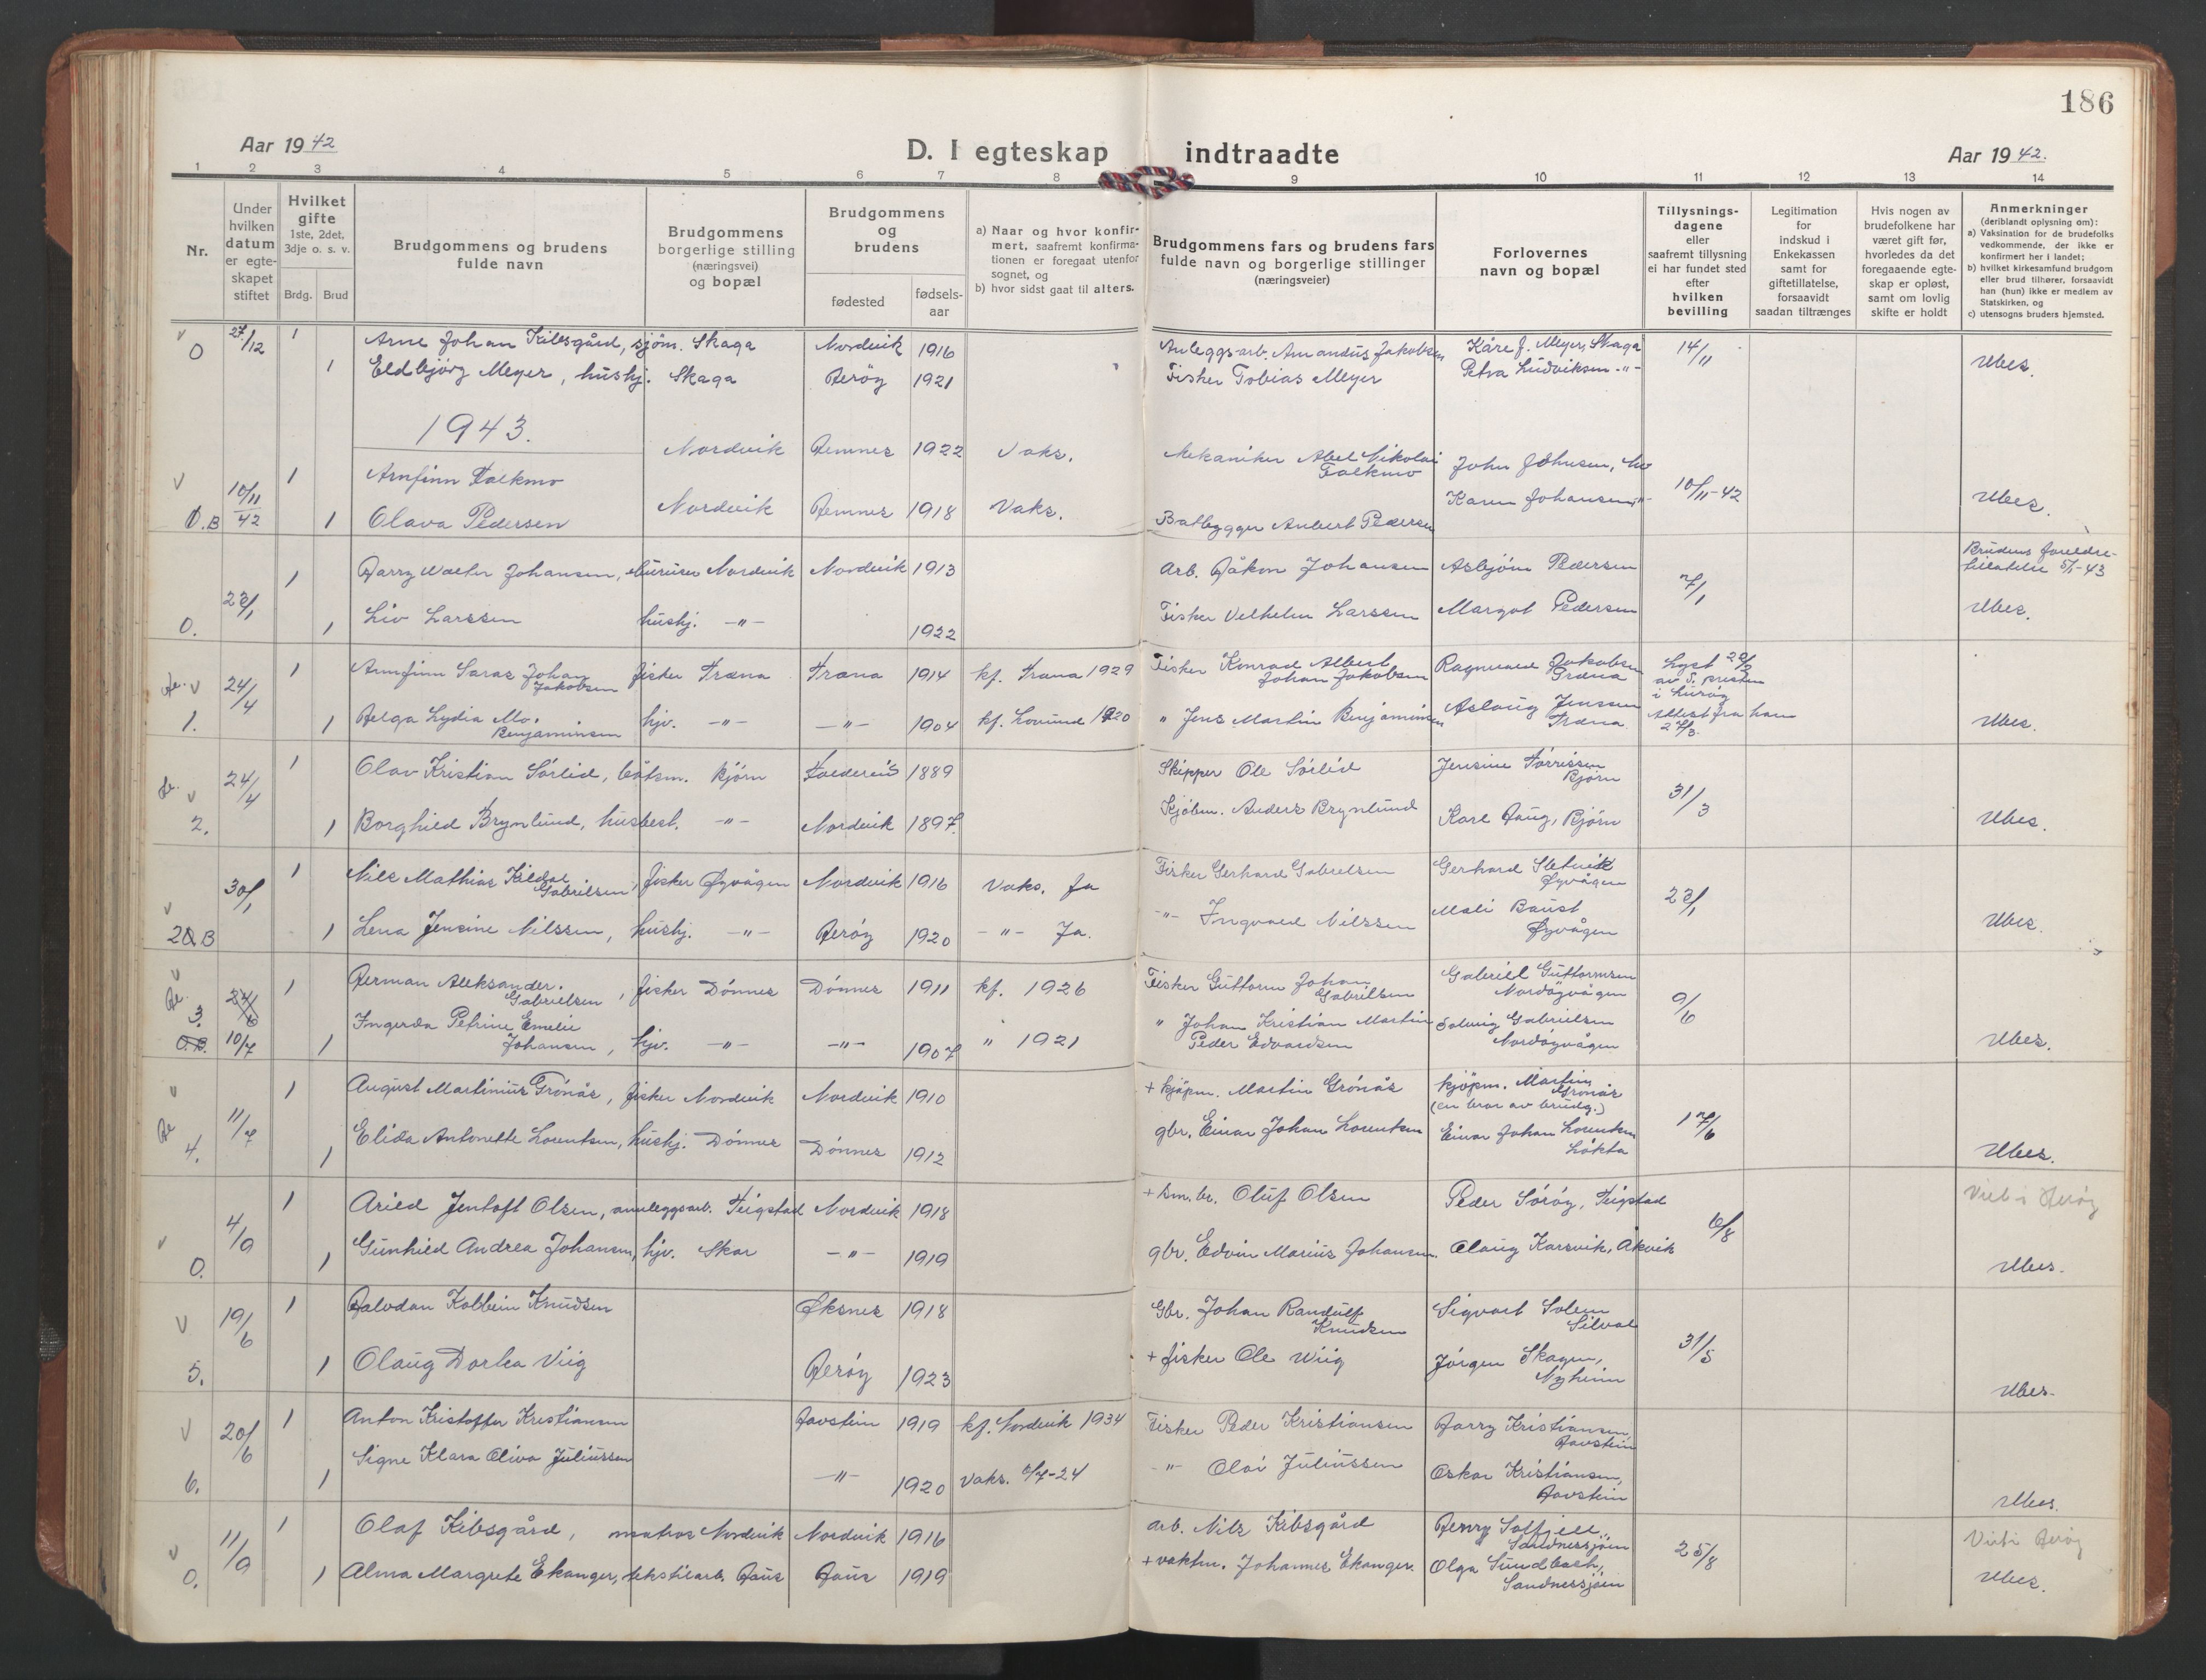 186
Aar 1942
D. I egteskap indtraadte
Aar 1942.
1 2 3 4 5 6 7 8 9 10 11 12 13 14
Nr.
Under hvilken datum er egte-skapet stiftet
Hvilket gifte 1ste, 2det, 3dje o. s. v.
Brdg. Brud
Brudgommens og brudens fulde navn
Brudgommens borgerlige stilling (næringsvei) og bopæl
Brudgommens og brudens
fødested
fødsels-aar
a) Naar og hvor konfir-mert, saafremt konfirma-tionen er foregaat utenfor sognet, og
b) hvor sidst gaat til alters.
Brudgommens fars og brudens fars fulde navn og borgerlige stillinger (næringsveier)
Forlovernes navn og bopæl
Tillysnings-dagene eller saafremt tillysning ei har fundet sted efter hvilken bevilling
Legitimation for indskud i Enkekassen samt for giftetillatelse, forsaavidt saadan tiltrænges
Hvis nogen av brudefolkene har været gift før, hvorledes da det foregaaende egte-skap er opløst, samt om lovlig skifte er holdt
Anmerkninger (deriblandt oplysning om):
a) Vaksination for de brudefolks vedkommende, der ikke er konfirmert her i landet;
b) hvilket kirkesamfund brudgom eller brud tilhører, forsaavidt han (hun) ikke er medlem av Statskirken, og
c) utensogns bruders hjemsted.
v 0 27/12 1 Arne Johan Kibsgård, sjøm. Skaga Nordvik 1916 Anleggsarb. Amandus Jakobsen Kåre J. Meyer, Skaga 14/11
1 Eldbjørg Meyer, hushj. Skaga Herøy 1921 Fisker Tobias Meyer Petra Ludviksen -"- Ubes.
1943.
v 0.B 10/11 42 1 Arnfinn Falkmo Nordvik Hemnes 1922 Vaks. Mekaniker Abel Nikolai Falkmo John Johnsen, 10/11-42
1 Olava Pedersen Nordvik Hemnes 1918 Vaks. Båtbygger Anbert Pedersen Karen Johansen -"- Ubes.
0. 23/1 1 Harry Walter Johansen, Nordvik Nordvik 1913 Arb. Håkon Johansen Asbjørn Pedersen 7/1 Brudens foreldre-tillatelse 5/1-43
1 Liv Larssen hushj. -"- 1922 Fisker Vilhelm Larssen Margot Pedersen Ubes.
He. v 1. 24/4 1 Arnfinn Saras Johan Jakobsen fisker Træna Træna 1914 kf. Træna 1929 Fisker Konrad Albert Johan Jakobsen Ragnvald Jakobsen Træna Lyst av S. presten i Lurøy
1 Helga Lydia Mo. Benjaminsen hjv. -"- -"- 1904 kf. Lovund 1920 " Jens Martin Benjaminsen Aslaug Jensen Træna Attest fra ham Ubes.
He. v 2. 24/4 1 Olav Kristian Sørlid, båtsm. Bjørn 1889 Skipper Ole Sørlid Jensine Tørrissen Bjørn 31/3
1 Borghild Brynlund, husbest. -"- Nordvik 1897. Kjøbm. Anders Brynlund Karl Haug, Bjørn Ubes.
v 2 0.B 30/1 1 Nils Mathias Kildal Gabrielsen, fisker Øyvågen Nordvik 1916 Vaks. Ja Fisker Gerhard Gabrielsen Gerhard Sletvik Øyvågen 23/1
1 Lena Jensine Nilssen, hushj. -"- Herøy 1920 -"- Ja. -"- Ingvald Nilssen Mali Baust Øyvågen Ubes.
v He. 3. 0.B. 24/6 10/7 1 Herman Aleksander. Gabrielsen, fisker Dønnes Dønnes 1911 kf. 1926 Fisker Guttorm Johan Gabrielsen Gabriel Guttormsen Nordøyvågen 9/6
1 Ingerda Petrine Emelie Johansen, hjv. -"- -"- 1907 " 1921 " Johan Kristian Martin Peder Edvardsen Solveig Gabrielsen Nordøyvågen Ubes.
v He 4. 11/7 1 August Martinius Grønås, fisker Nordvik Nordvik 1910 + kjøpm. Martin Grønås kjøpm. Martin Grønås (en bror av brudg.) 17/6
1 Elida Antonette Lorentsen, hushj. Dønnes Dønnes 1912 gbr. Einar Johan Lorentsen Einar Johan Lorentsen Løkta Ubes.
v 0. 4/9 1 Arild Jentoft Olsen, annleggsarb. Teigstad Nordvik 1918 + sm.br. Oluf Olsen Peder Sørøy, Teigstad 6/8 Viet i Herøy
1 Gunhild Andrea Johansen, hjv. Skar -"- 1919 gbr. Edvin Marius Johansen. Olaug Karsvik, Åkvik Ubes.
v 5. 19/6 1 Halvdan Kolbein Knudsen Øksnes 1918 Gbr. Johan Randulf Knudsen Sigvart Solem Silval 31/5
1 Olaug Dorhea Viig Herøy 1923 + fisker Ole Wiig Jørgen Skagen, Nyheim Ubes.
v 6. 20/6 1 Anton Kristoffer Kristiansen Havstein 1919 kf. Nordvik 1934 Fisker Peder Kristiansen Harry Kristiansen, Havstein
1 Signe Klara Oliva Juliussen -"- 1920 Vaks. 6/7-24 -"- Olai Juliussen Oskar Kristiansen, Havstein Ubes.
v 0. 11/9 1 Olaf Kibsgård, matros Nordvik Nordvik 1916 arb. Nils Kibsgård Henry Solfjell, Sandnessjøen 25/8 Viet i Herøy
1 Alma Margrete Ekanger, tekstilarb. Haus Haus 1919 + vaktm. Johannes Ekanger. Olga Sundbach, Sandnessjøen Ubes.